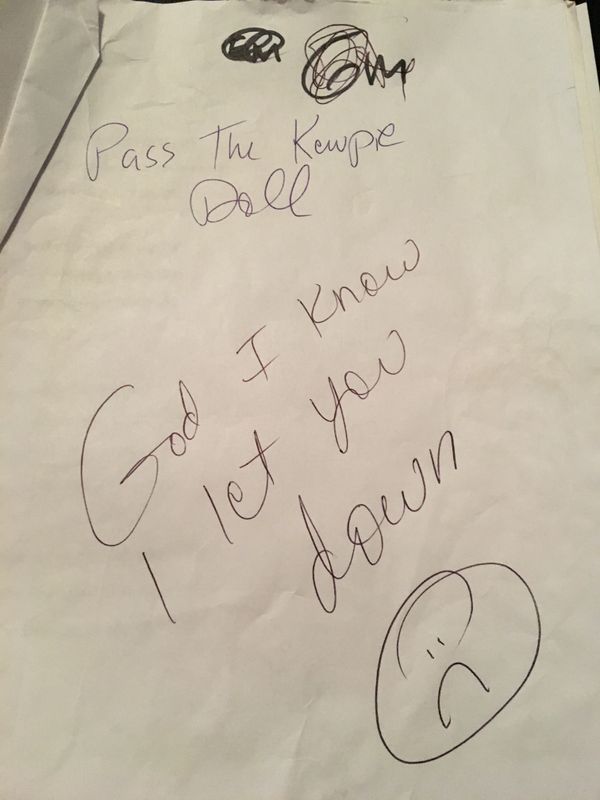 Pass The Kewpie
Doll
God I Know
I let you
down